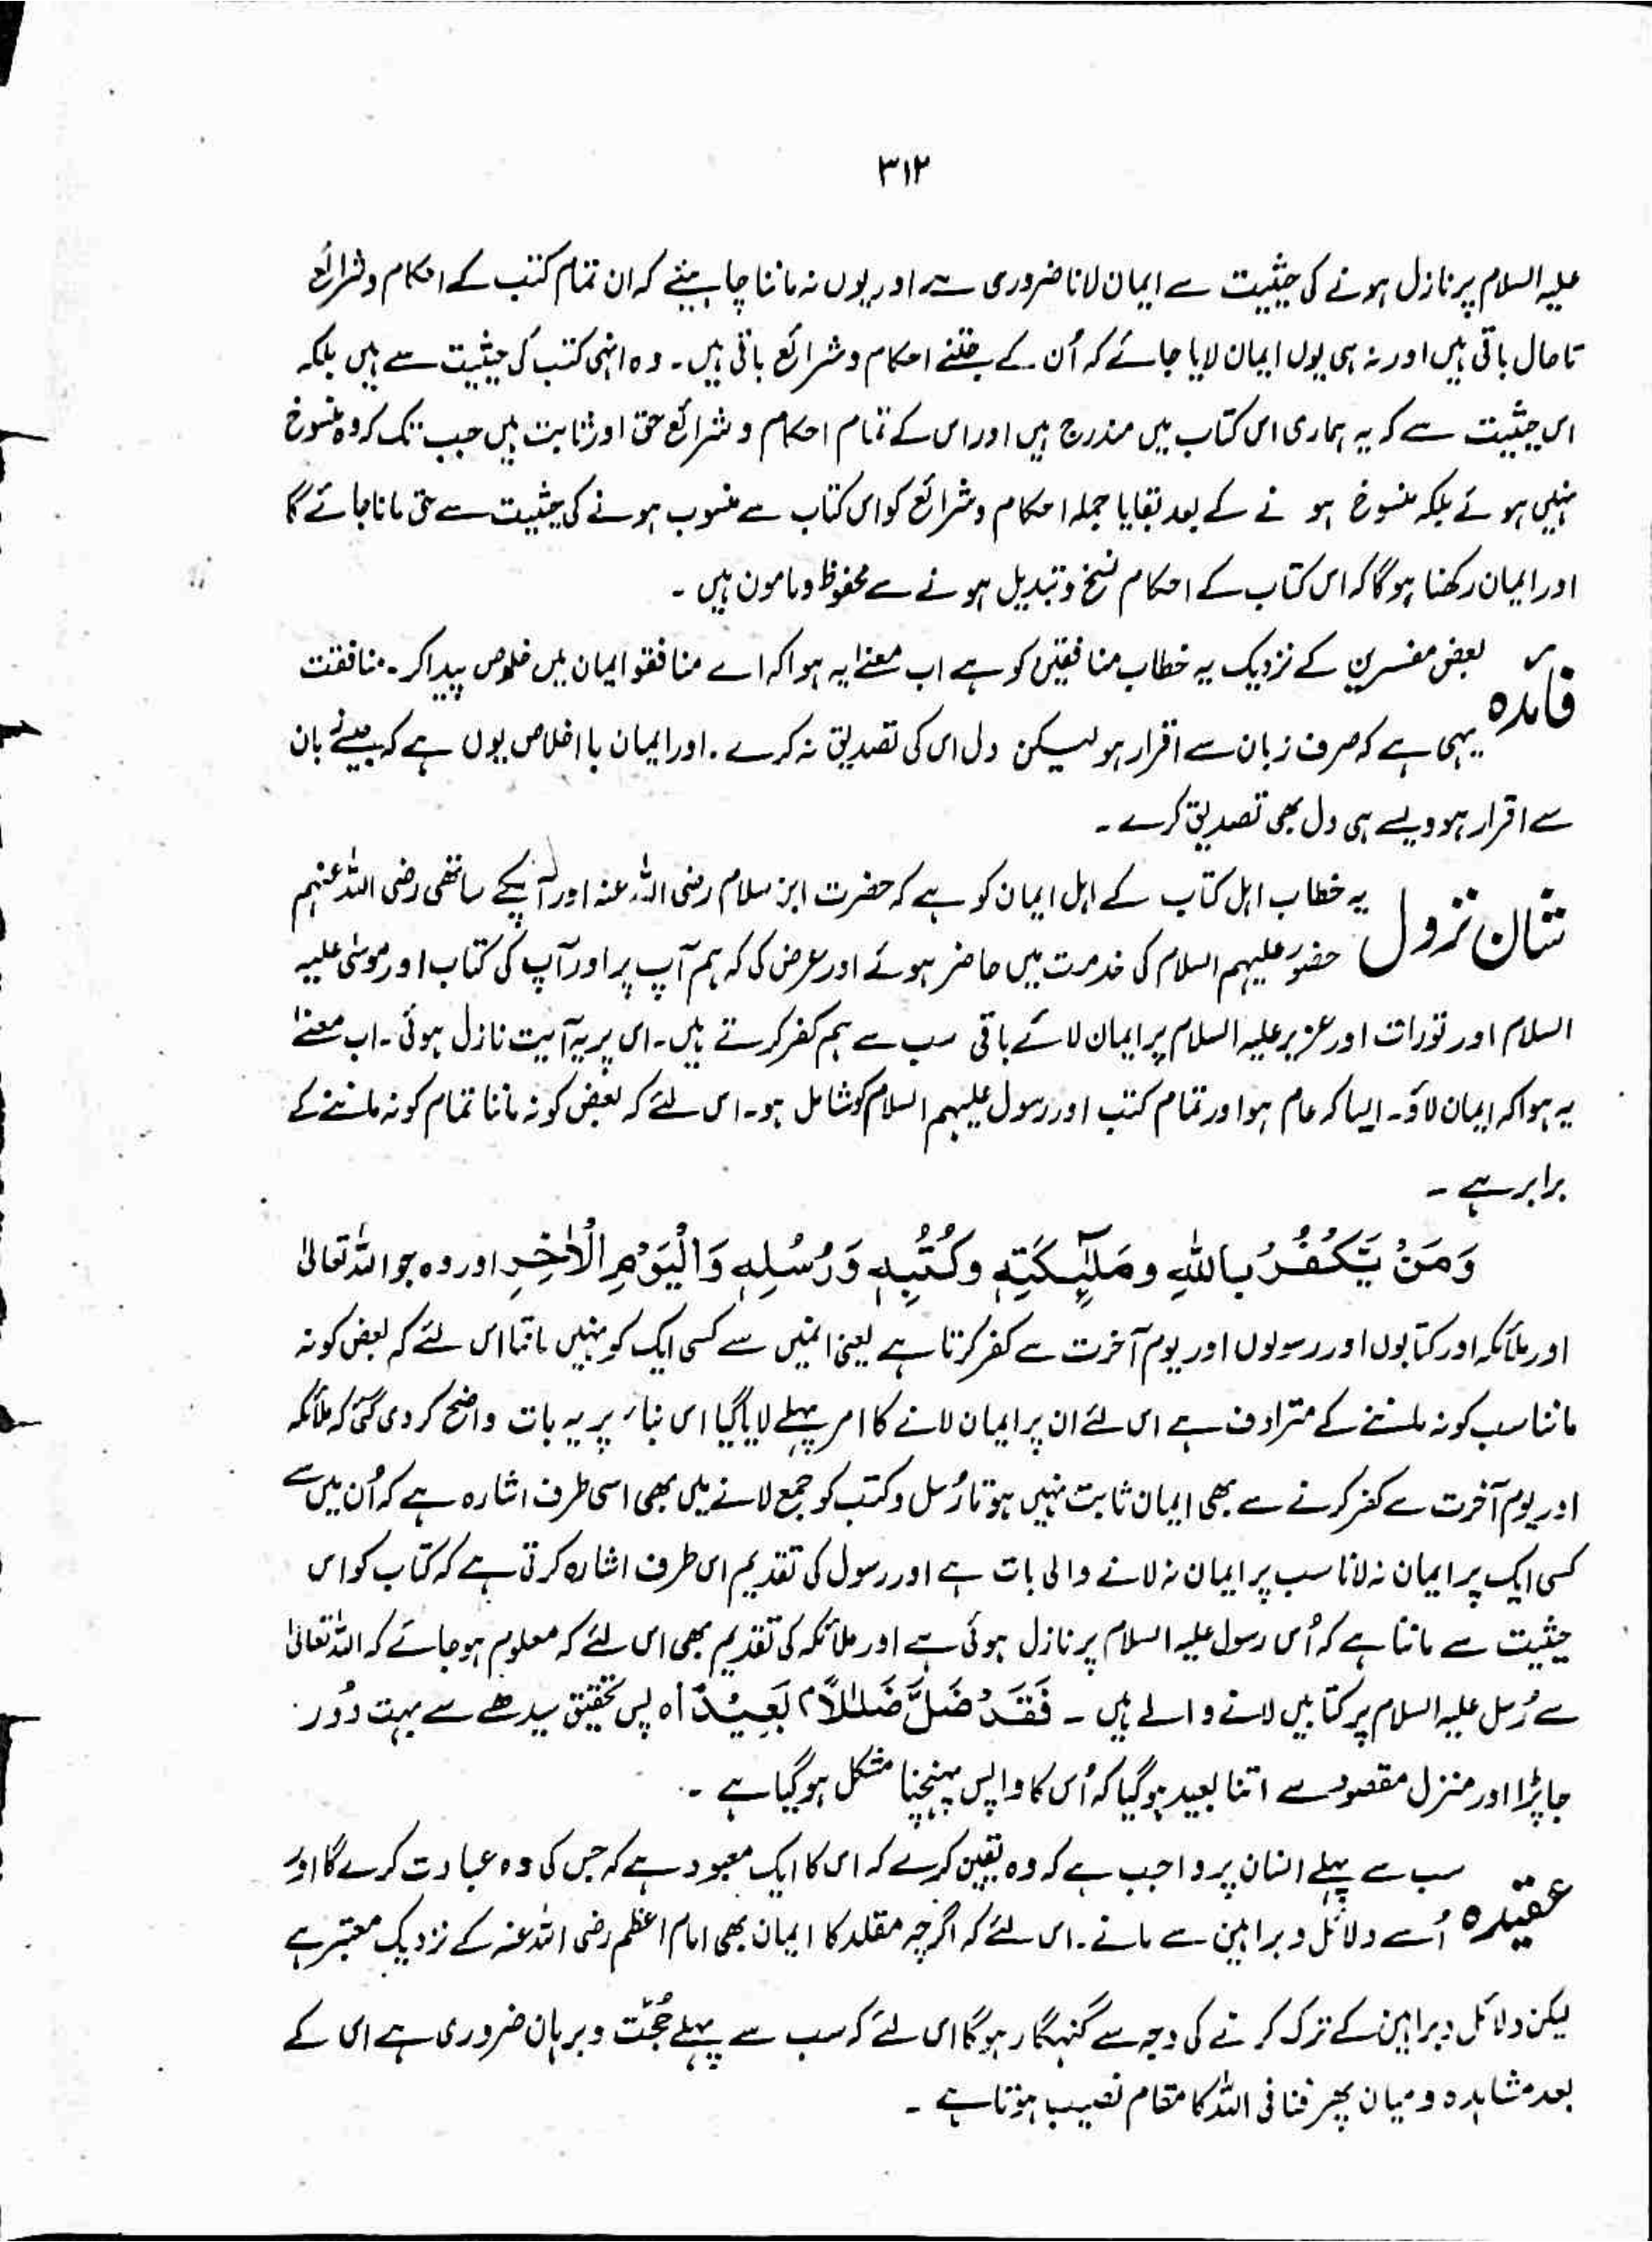 ۳۱۲
علیہ السلام پر نازل ہونے کی حیثیت سے ایمان لانا ضروری ہے اور یوں نہ ماننا چاہیئے کہ ان تمام کتب کے احکام و شرائع
تاحال باقی ہیں اور نہ ہی یوں ایمان لایا جائے کہ اُن کے جتنے احکام و شرائع باقی ہیں۔ وہ انہی کتب کی حیثیت سے ہیں بلکہ
اس حیثیت سے کہ یہ ہماری اس کتاب میں مندرج ہیں اور اس کے تمام احکام و شرائع حق اور ثابت ہیں جب تک کہ وہ منسوخ
نہیں ہوئے بلکہ منسوخ ہو نے کے بعد بقایا جملہ احکام و شرائع کو اس کتاب سے منسوب ہونے کی حیثیت سے حق مانا جائے گا
اور ایمان رکھنا ہوگا کہ اس کتاب کے احکام نسخ و تبدیل ہونے سے محفوظ و مامون ہیں ۔
فائدہ بعض مفسرین کے نزدیک یہ خطاب منافقین کو ہے اب معنےٰ یہ ہوا کہ اے منافقو ایمان میں خلوص پیدا کر۔ منافقت
یہی ہے کہ صرف زبان سے اقرار ہو لیکن دل اس کی تصدیق نہ کرے۔ اور ایمان با اخلاص یوں ہے کہ جیسے زبان
سے اقرار ہو ویسے ہی دل بھی تصدیق کرے ۔
شان نزول یہ خطاب اہل کتاب کے اہل ایمان کو ہے کہ حضرت ابن سلام رضی اللہ عنہ اور آپکے ساتھی رضی اللہ عنہم
حضور علیہم السلام کی خدمت میں حاضر ہوئے اور عرض کی کہ ہم آپ پر اور آپ کی کتاب اور موسیٰ علیہ
السلام اور تورات اور عزیر علیہ السلام پر ایمان لائے باقی سب سے ہم کفر کرتے ہیں۔ اس پر یہ آیت نازل ہوئی۔ اب معنےٰ
یہ ہوا کہ ایمان لاؤ۔ ایسا کہ عام ہو اور تمام کتب اور رسول علیہم السلام کو شامل ہو۔ اس لئے کہ بعض کو نہ ماننا تمام کو نہ ماننے کے
برابر ہے ۔
وَمَنْ یَّکْفُرْ بِاللہِ وَمَلٰٓئِکَتِہٖ وَکُتُبِہٖ وَرُسُلِہٖ وَالْیَوْمِ الْاٰخِرِ اور وہ جو اللہ تعالیٰ
اور ملائکہ اور کتابوں اور رسولوں اور یوم آخرت سے کفر کرتا ہے یعنی انمیں سے کسی ایک کو نہیں مانتا اس لئے کہ بعض کو نہ
ماننا سب کو نہ ماننے کے مترادف ہے اس لئے ان پر ایمان لانے کا امر پہلے لایا گیا اس بناء پر یہ بات واضح کر دی گئی کہ ملائکہ
اور یوم آخرت سے کفر کرنے سے بھی ایمان ثابت نہیں ہوتا رُسل و کتب کو جمع لانے میں بھی اسی طرف اشارہ ہے کہ اُن میں سے
کسی ایک پر ایمان نہ لانا سب پر ایمان نہ لانے والی بات ہے اور رسول کی تقدیم اس طرف اشارہ کرتی ہے کہ کتاب کو اس
حیثیت سے ماننا ہے کہ اُس رسول علیہ السلام پر نازل ہوئی ہے اور ملائکہ کی تقدیم بھی اس لئے کہ معلوم ہو جائے کہ اللہ تعالیٰ
سے رُسل علیہ السلام پر کتابیں لانے والے ہیں ۔ فَقَدْ ضَلَّ ضَلٰلًاۢ بَعِیْدًا ہ پس تحقیق سیدھے سے بہت دُور
جا پڑا اور منزل مقصود سے اتنا بعید ہوگیا کہ اُس کا واپس پہنچنا مشکل ہوگیا ہے ۔
عقیدہ سب سے پہلے انسان پر واجب ہے کہ وہ یقین کرے کہ اس کا ایک معبود ہے کہ جس کی وہ عبادت کرے گا اور
اُسے دلائل و براہین سے مانے۔ اس لئے کہ اگرچہ مقلد کا ایمان بھی امام اعظم رضی اللہ عنہ کے نزدیک معتبر ہے
لیکن دلائل و براہین کے ترک کرنے کی وجہ سے گنہگار ہوگا اس لئے کہ سب سے پہلے حُجّت و برہان ضروری ہے اس کے
بعد مشاہدہ و میان پھر فنا فی اللہ کا مقام نصیب ہوتا ہے ۔